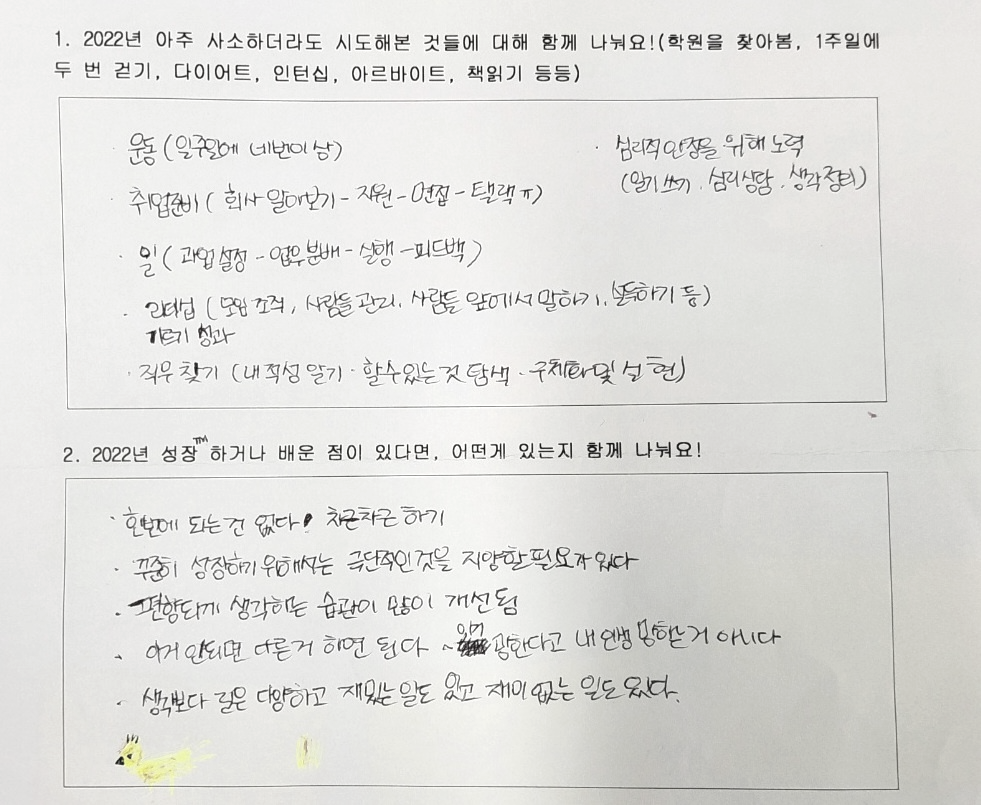 1. 2022년 아주 사소하더라도 시도해본 것들에 대해 함께 나눠요!(학원을 찾아봄, 1주일에
두 번 걷기, 다이어트, 인턴십, 아르바이트, 책읽기 등등)
· 운동 (일주일에 네번이상)
· 취업준비 ( 회사 알아보기 - 지원 - 면접 - 탈락 ㅠ)
· 일 ( 과업설정 - 업무분배 - 실행 - 피드백 )
· 리더십 ( 모임 조직, 사람들 관리, 사람들 앞에서 말하기, 설득하기 등)
기르기 성과
· 직무 찾기 (내 적성 알기 · 할수있는것 탐색 · 구체화 및 실현)
· 심리적 안정을 위해 노력
(일기 쓰기, 심리상담, 생각정리)
2. 2022년 성장™하거나 배운 점이 있다면, 어떤게 있는지 함께 나눠요!
· 한번에 되는건 없다! 차근차근 하기
· 꾸준히 성장하기 위해서는 극단적인것을 지양할 필요가 있다
· 편향되게 생각하는 습관이 많이 개선됨
· 이거 안되면 다른거 하면 된다 ~ 이거 못한다고 내 인생 망하는거 아니다
· 생각보다 길은 다양하고 재밌는일도 있고 재미 없는 일도 있다.